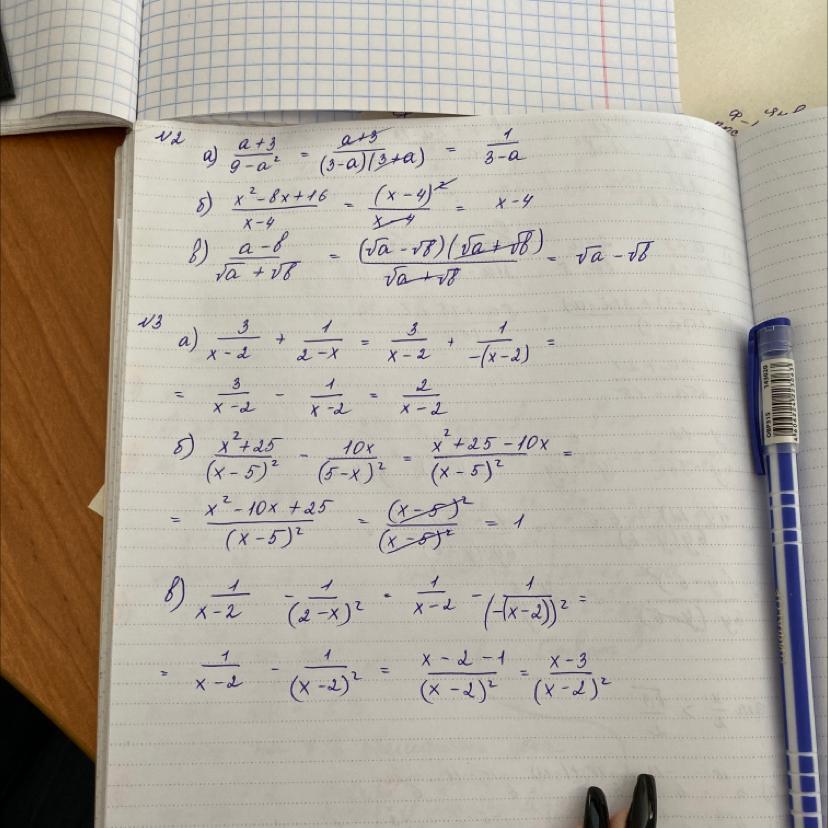 №2 а) \frac{a+3}{9-a^2} = \frac{a+3}{(3-a)(3+a)} = \frac{1}{3-a}
б) \frac{x^2-8x+16}{x-4} = \frac{(x-4)^2}{x-4} = x-4
в) \frac{a-b}{\sqrt{a}+\sqrt{b}} = \frac{(\sqrt{a}-\sqrt{b})(\sqrt{a}+\sqrt{b})}{\sqrt{a}+\sqrt{b}} = \sqrt{a}-\sqrt{b}
№3 а) \frac{3}{x-2} + \frac{1}{2-x} = \frac{3}{x-2} + \frac{1}{-(x-2)} =
= \frac{3}{x-2} - \frac{1}{x-2} = \frac{2}{x-2}
б) \frac{x^2+25}{(x-5)^2} - \frac{10x}{(5-x)^2} = \frac{x^2+25-10x}{(x-5)^2} =
= \frac{x^2-10x+25}{(x-5)^2} = \frac{(x-5)^2}{(x-5)^2} = 1
в) \frac{1}{x-2} - \frac{1}{(2-x)^2} = \frac{1}{x-2} - \frac{1}{(-(x-2))^2} =
= \frac{1}{x-2} - \frac{1}{(x-2)^2} = \frac{x-2-1}{(x-2)^2} = \frac{x-3}{(x-2)^2}